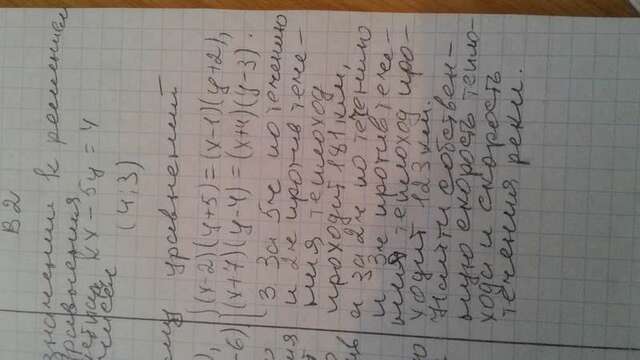 В2
значении k решением
уравнения
kx - 5y = 4
чисел
(4;3)
уравнений
),
(x-2)(y+5)=(x-1)(y+2),
-6)
(x+7)(y-4)=(x+4)(y-3).
3. За 5ч по течению
и 2ч против тече-
ния теплоход
проходит 181 км,
а за 2ч по течению
и 3ч против тече-
ния теплоход про-
ходит 123 км.
Найти собствен-
ную скорость тепло-
хода и скорость
течения реки.